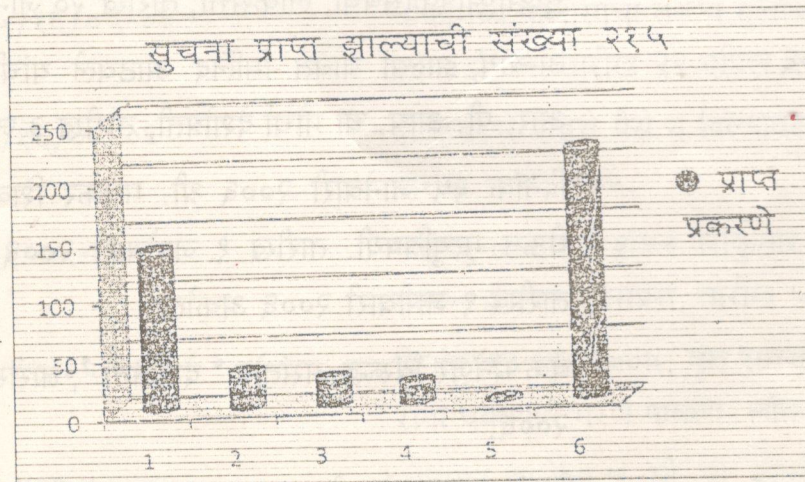 सुचना प्राप्त झाल्याची संख्या २१५
250
200
150
100
50
0
1 2 3 4 5 6
प्राप्त
प्रकरणे